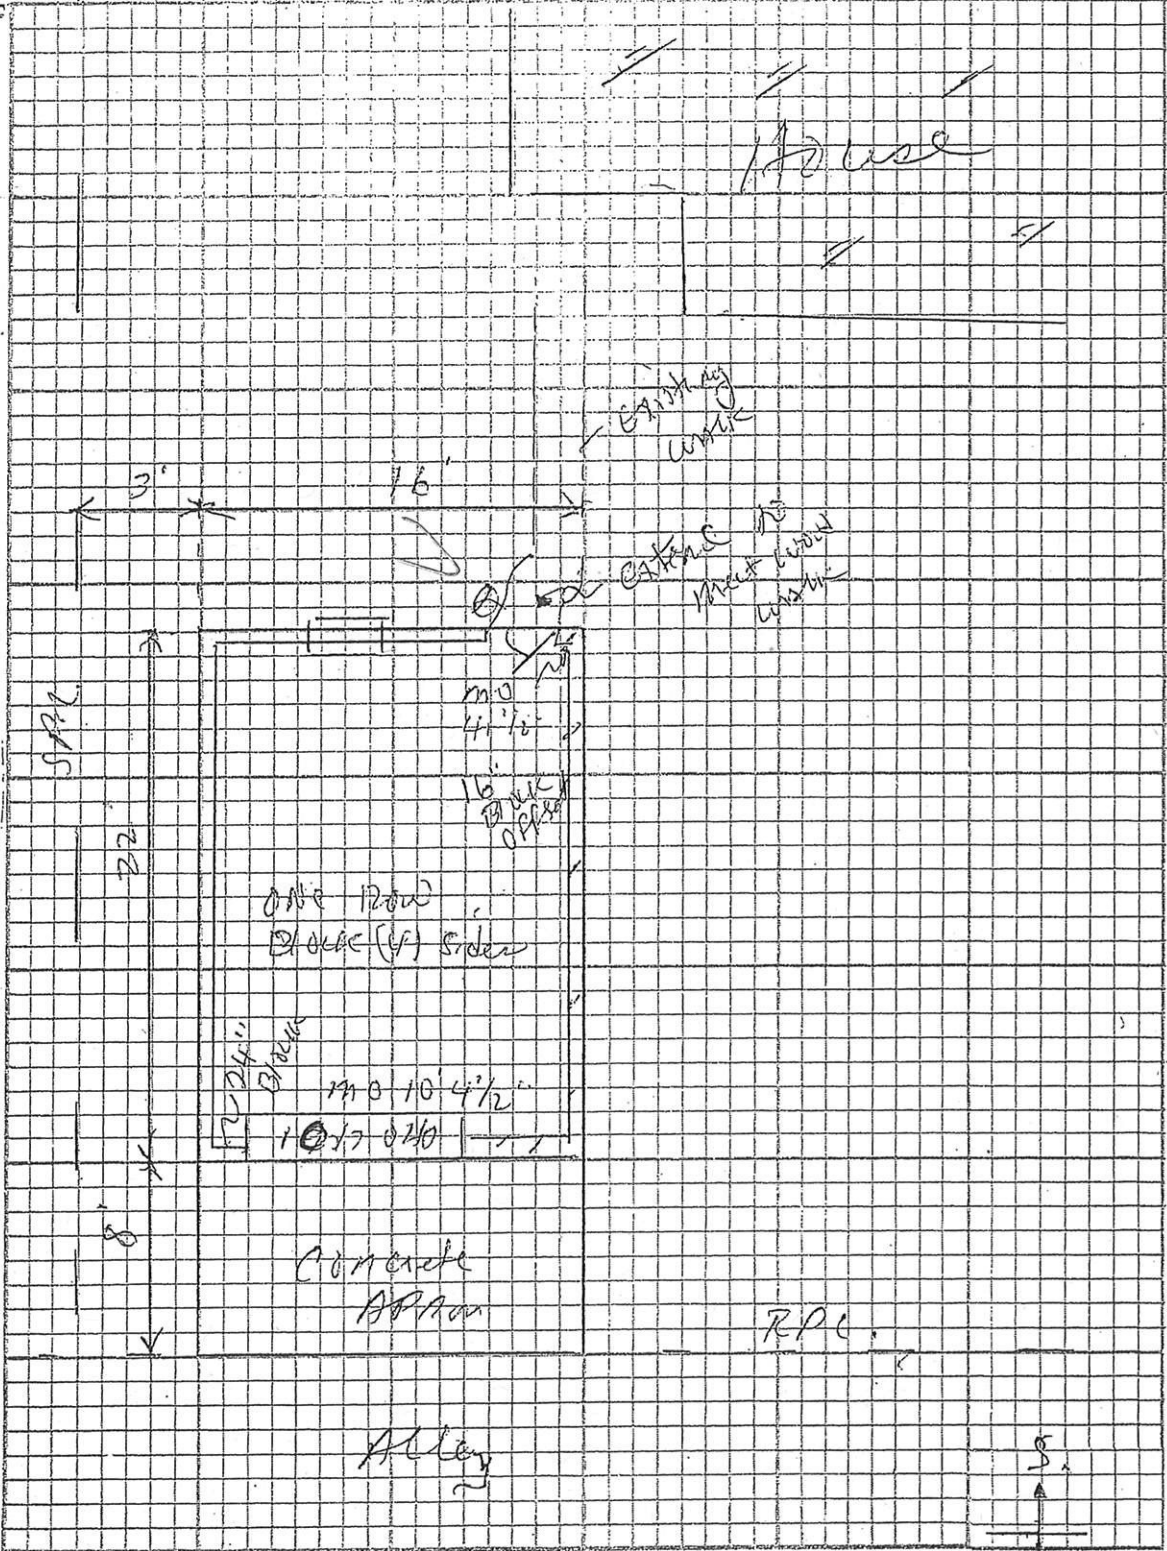 House
Existing
walk
3'
16'
extend to
meet
walk
MO
41 1/2"
22
16"
Block
offset
one row
Block (4) sides
24"
Block
MO 10' 4 1/2"
8'
Concrete
Apron
Alley
S.